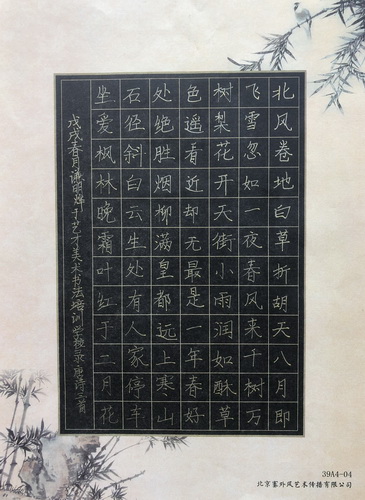 北风卷地白草折胡天八月即
飞雪忽如一夜春风来千树万
树梨花开天街小雨润如酥草
色遥看近却无最是一年春好
处绝胜烟柳满皇都远上寒山
石径斜白云生处有人家停车
坐爱枫林晚霜叶红于二月花
戊戌春月明于艺才美术书法培训学校录唐诗三首
39A4-04
北京塞外风艺术传播有限公司